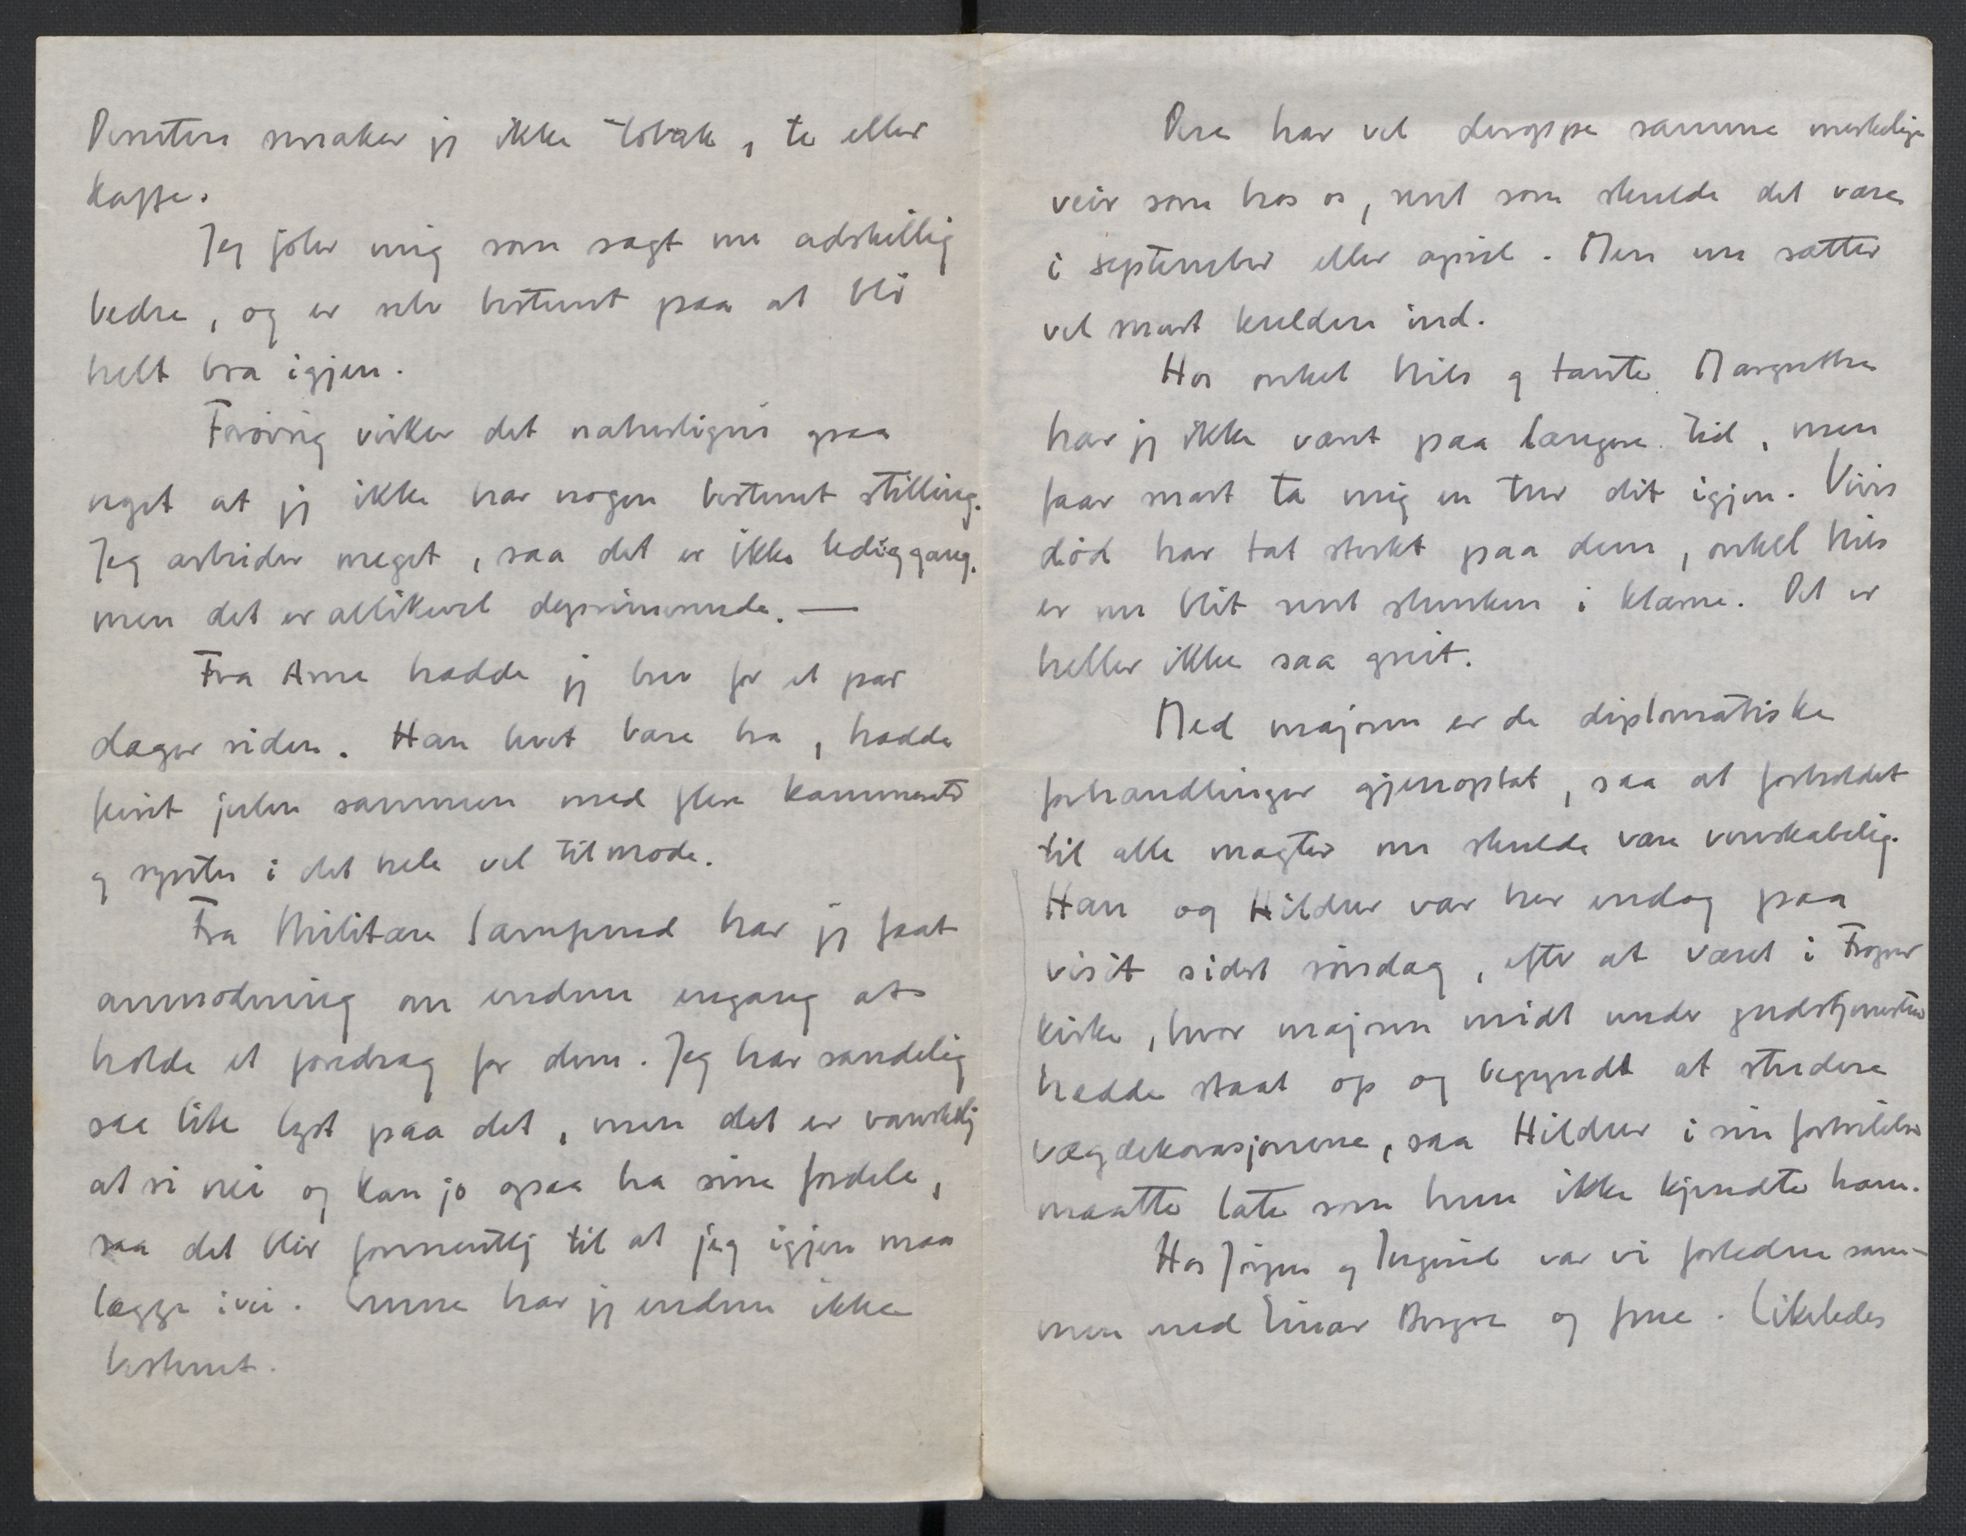 Desuten smaker jeg ikke tobak, te eller
kaffe.
Jeg føler mig som sagt nu adskillig
bedre, og er selv bestemt paa at bli
helt bra igjen.
Forøvrig virker det naturligvis ogsaa
noget at jeg ikke har nogen bestemt stilling.
Jeg arbeider meget, saa det er ikke lediggang,
men det er allikevel deprimerende. —
Fra Arne hadde jeg brev for et par
dager siden. Han hadde bare bra, hadde
feiret julen sammen med flere kammerater
og syntes i det hele vel tilmode.
Fra Militære Samfund har jeg faat
anmodning om endnu engang at
holde et foredrag for dem. Jeg har sandelig
saa lite lyst paa det, men det er vanskelig
at si nei og kan jo ogsaa ha sine fordele,
saa det blir formentlig til at jeg igjen maa
lægge ivei. Emne har jeg endnu ikke
bestemt.
Dere har vel deroppe samme merkelige
veir som hos os, rent som skulde det være
i september eller april. Men nu sætter
vel snart kulden ind.
Hos onkel Nils og tante Margrethe
har jeg ikke været paa længere tid, men
faar snart ta mig en tur dit igjen. Vivis
død har tat sterkt paa dem, onkel Nils
er nu blit rent slunken i klærne. Det er
heller ikke saa greit.
Med majoren er de diplomatiske
forhandlinger gjenoptat, saa at forholdet
til alle magter nu skulde være venskabelig.
Han og Hildur var her endog paa
visit sidst søndag, efter at været i Frogner
kirke, hvor majoren midt under gudstjenesten
hadde staat op og begyndt at studere
vægdekorasjonene, saa Hildur i sin fortvilelse
maatte late som hun ikke kjendte ham.
Hos Jørgen og Ingerid var vi forleden sam-
men med Einar og frue. Likeledes